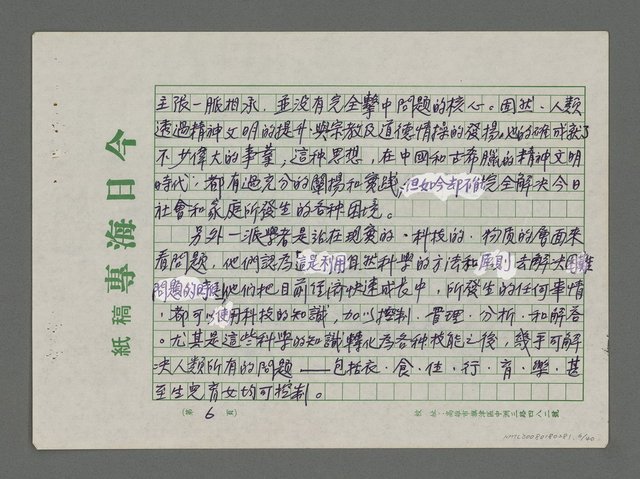 主張一脈相承，並沒有完全擊中問題的核心。固然，人類
透過精神文明的提升與宗教及道德情操的發揚，也的確成就了
不少偉大的事業，這种思想，在中國和古希臘的精神文明
時代，都有過充分的闡揚和實踐，但如今却不能完全解決今日
社會和家庭所發生的各种困境。
另外一派學者是站在現實的、科技的、物质的層面來
看問題，他們認為這是利用自然科學的方法和原則去解決困難
問題的時候，他們把目前經濟快速成長中，所發生的任何事情
，都可以使用科技的知識，加以控制、管理、分析、和解答
。尤其是這些科學的知識轉化為各种技能之後，幾乎可解
決人類所有的問題——包括衣、食、住、行、育、樂、甚
至生兒育女均可控制。
今日海專
稿紙
（第 6 頁）
校址：高雄市旗津區中洲三路四八二號